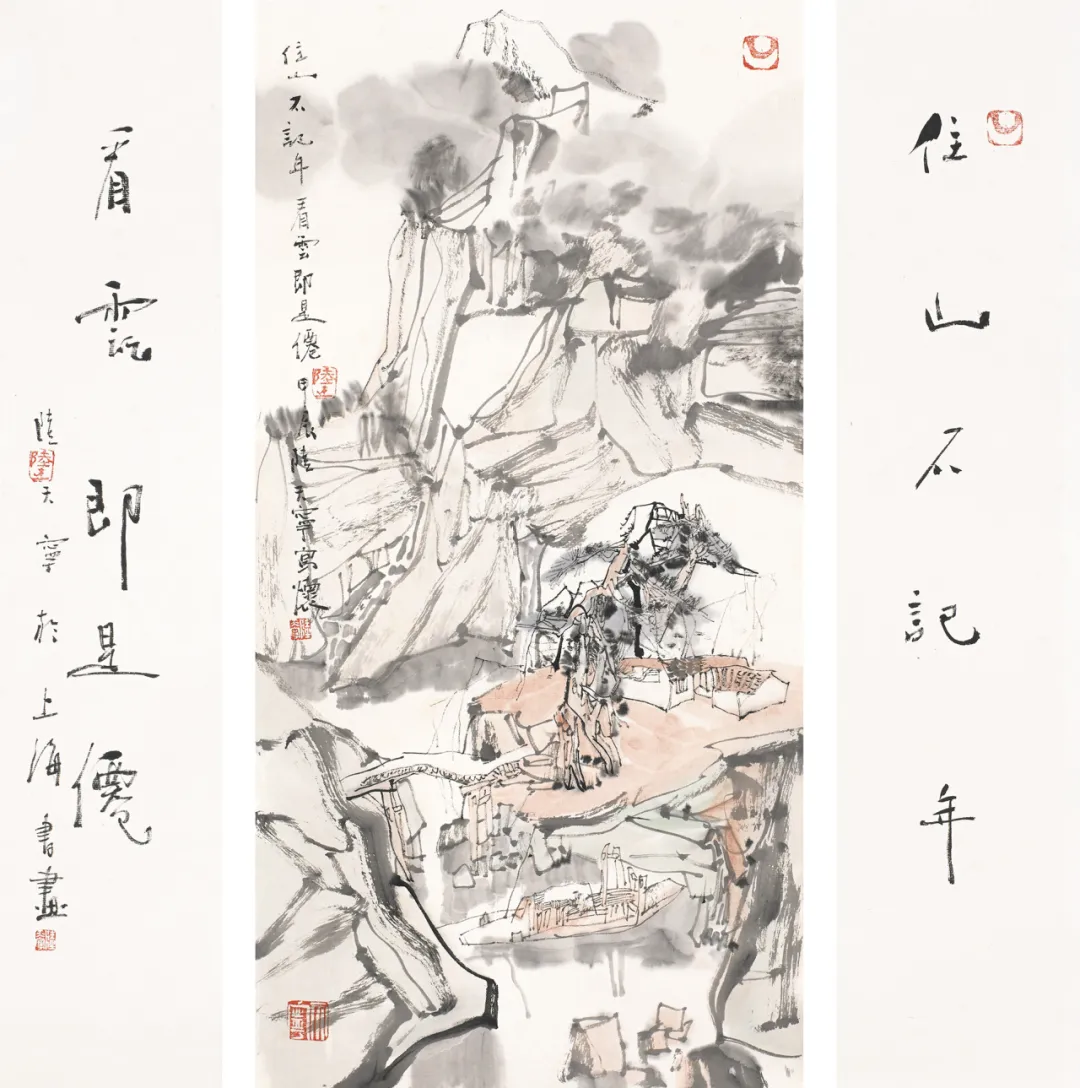 住山不記年
住山不記年看雲即是僊甲辰陸天寧寓懷
看雲即是僊
陸天寧於上海書畫